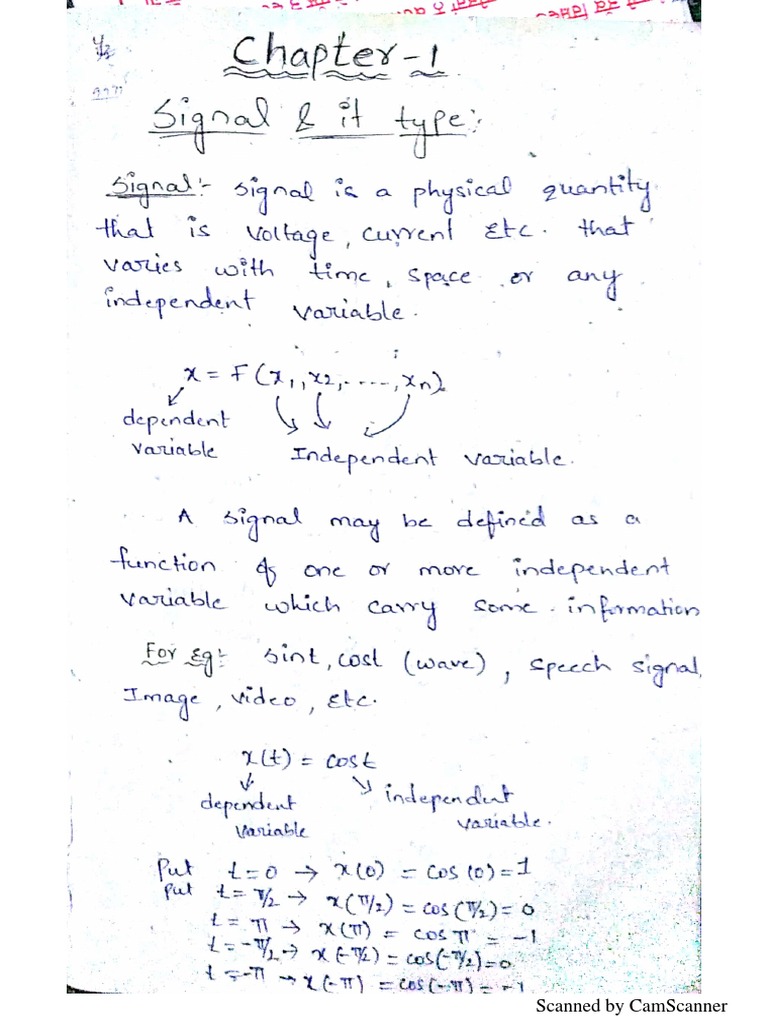 Chapter-1
Signal & it type:
Signal:- Signal is a physical quantity
that is voltage, current Etc. that
varies with time, space or any
independent variable.
x = F(x1, x2, ....., xn)
dependent variable
Independent variable.
A signal may be defined as a
function of one or more independent
variable which carry some information
For Eg:- sint, cost (wave), speech signal,
Image, video, Etc.
x(t) = cost
dependent variable
independent variable.
Put t=0 → x(0) = cos(0)=1
Put t=π/2 → x(π/2) = cos(π/2)=0
t=π → x(π) = cosπ = -1
t=-π/2 → x(-π/2) = cos(-π/2)=0
t=-π → x(-π) = cos(-π) = -1
Scanned by CamScanner